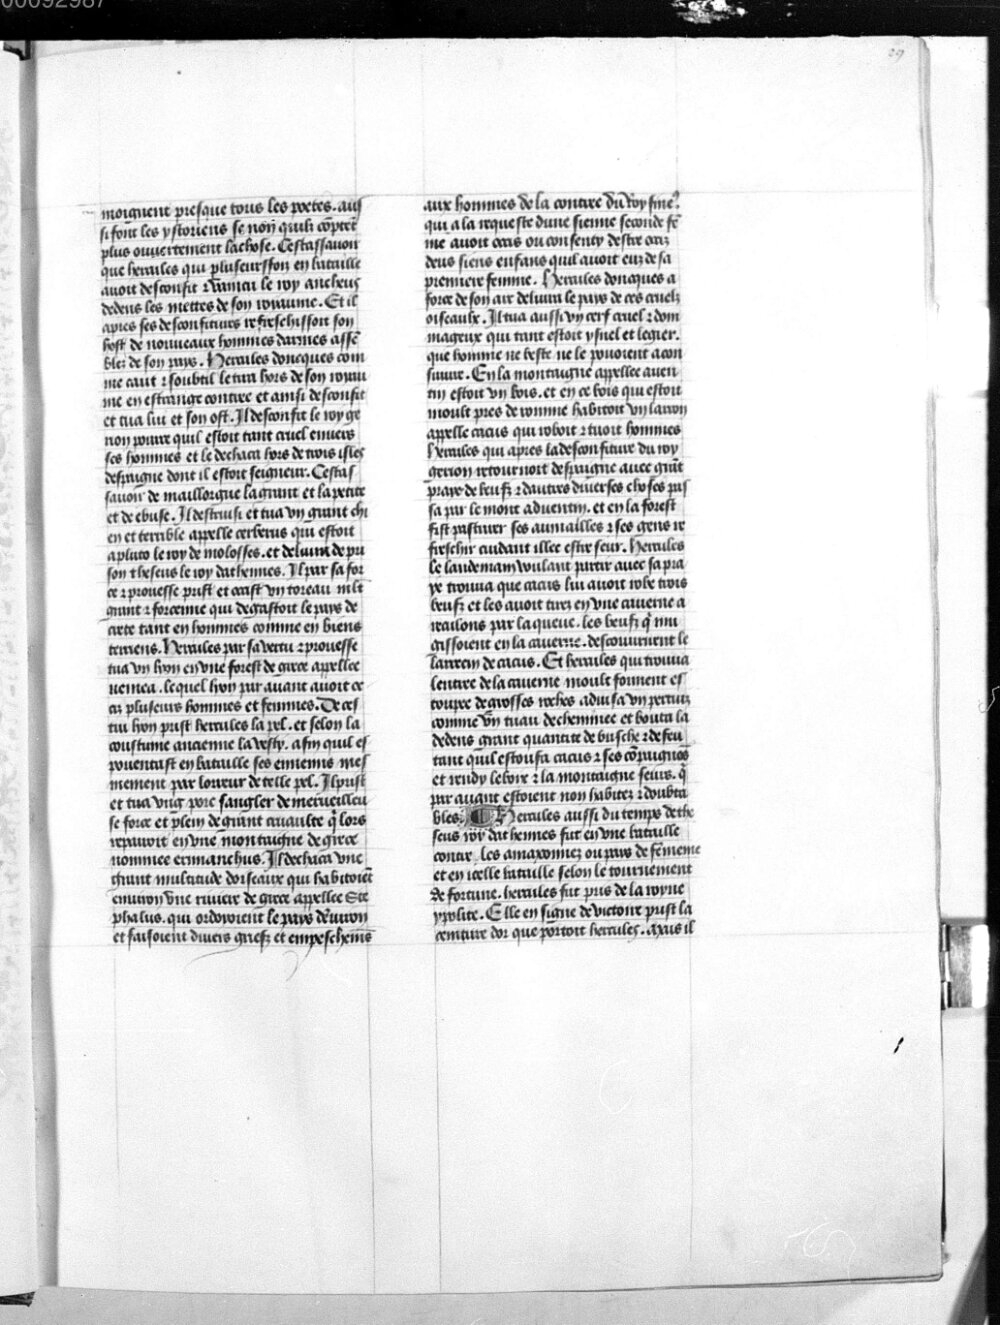 00092987
29
moignent presque tous les poetes. aus
si font les ystoriens se non quilz cōptēt
plus ouuertement la chose. Cestassauoir
que hercules qui plusieursfois en bataille
auoit desconfit ⁊ vaincu le roy ancheus
dedens les mettes de son royaume. Et il
apres ses desconfitures refreschissoit son
host de nouueaux hommes darmes assē
blez de son pays. Hercules doncques com
me caut ⁊ soubtil le tira hors de son royau
me en estrange contree et ainsi desconfit
et tua lui et son ost. Il desconfit le roy ge
rion pource quil estoit tant cruel enuers
ses hommes et le dechaca hors de trois isles
despaigne dont il estoit seigneur. Cestas
sauoir de maillorgue la grant et la petite
et de ebuse. Il destruisi et tua vn grant chi
en et terrible appelle cerberus qui estoit
a pluto le roy de molosses. et deliura de pri
son theseus le roy dathennes. Il par sa for
ce ⁊ prouesse prist et occist vn toreau mlt
grant ⁊ forcenne qui degastoit le pays de
crete tant en hommes comme en biens
terriens. Hercules par sa vertu ⁊ prouesse
tua vn lyon en vne forest de grece appellee
nemea. lequel lyon par auant auoit oc
cis plusieurs hommes et femmes. De ces
tui lyon prist hercules la pel. et selon la
coustume ancienne la vesty. afin quil es
pouentast en bataille ses ennemis mes
mement par lorreur de telle pel. Il prist
et tua vng porc sanglier de merueilleu
se force et plein de grant cruaulte q̄ lors
repairoit en vne montaigne de grece
nommee erimanchus. Il dechaca vne
grant multitude doiseaux qui habitoiēt
enuiron vne riuiere de grece appellee Ste
phalus. qui ordoyoient le pays dēuiron
et faisoient diuers griefz et empeschemēs
aux hommes de la contree du Roy finee
qui a la requeste dune sienne seconde fē
me auoit occis ou consenty destre occiz
deux siens enfans quil auoit euz de sa
premiere femme. Hercules doncques a
force de son arc deliura le pays de ces cruelz
oiseaulx. Il tua aussi vn cerf cruel ⁊ dom
mageux qui tant estoit ysnel et legier.
que homme ne beste ne le pouoient acon
suiure. En la montaigne appellee auen
tin estoit vn bois. et en ce bois qui estoit
moult pres de romme habitoit vn larron
appelle cacus qui roboit ⁊ tuoit hommes
Hercules qui apres la desconfiture du roy
gerion retournoit despaigne auec grāt
praye de beufz ⁊ dautres diuerses choses pas
sa par le mont aduentin. et en la forest
fist pasturer ses aumailles ⁊ ses gens re
freschir cuidant illec estre seur. Hercules
le landemain voulant partir auec sa pra
ye trouua que cacus lui auoit robe trois
beufz et les auoit tirez en vne cauerne a
reculons par la queue. les beufz q̄ mu
gissoient en la cauerne. descouurirent le
larrecin de cacus. Et hercules qui trouua
lentree de la cauerne moult forment es
toupee de grosses roches aduisa vn pertuiz
comme vn tuau de cheminee et bouta la
dedens grant quantite de busche ⁊ de feu
tant quil estoufa cacus ⁊ ses cōpaignōs
et rendy le bois ⁊ la montaigne seurs. q̄
par auant estoient non habitez ⁊ doubta
bles. Hercules aussi du temps de the
seus roy dathennes fut en vne bataille
contre les amazonnez ou pays de fēmeine
et en icelle bataille selon le tournement
de fortune. hercules fut pris de la royne
ypolite. Elle en signe de victoire prist la
ceinture dor que portoit hercules. Mais il